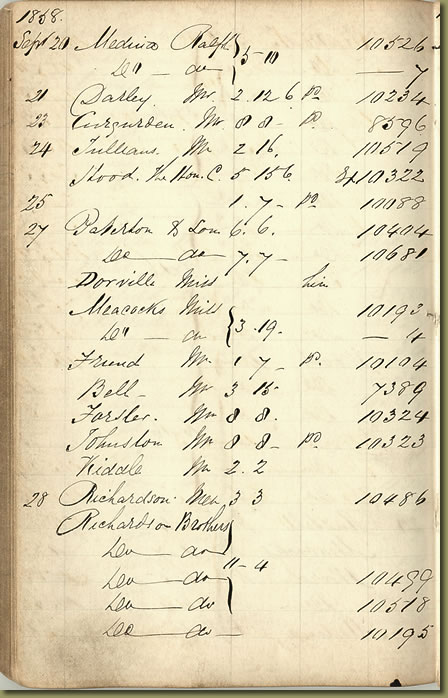 1858.
Sept 20 Medina Ralph } 5 - 10 10526 -
Do - do - 7
21 Darley Mr 2. 12 6. pd 10234
23 Mr 8 8 - pd. 8596
24 Mr 2. 16. 10519
Hood. The Hon. C. 5 15 6. 10322
25 1. 7 - pd 10088
27 & Son 6. 6. 10404
Do - do - 7. 7 - 10681
Dorville Miss
Meacocks Miss { 3. 19. 10193
Do - do - 4
Friend Mr. 1 7 - pd. 10104
Bell - Mr 3 15 - 7389
Forster. Mr 8 8. 10324
Johnston Mr 8 8 - pd 10323
Kiddle Mr 2. 2
28 Richardson 3 3 10486
Richardson Brothers }
Do - do
Do - do 11 - 4 10499
Do - do 10518
Do - do - 10195